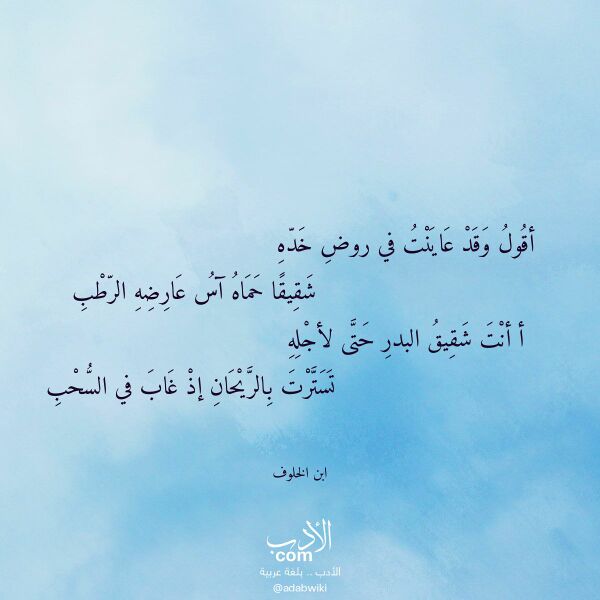 أقُولُ وَقَدْ عَايَنْتُ في روضِ خَدّهِ
شَقِيقًا حَمَاهُ آسُ عَارِضِهِ الرّطْبِ
أ أنْتَ شَقِيقُ البدرِ حَتَّى لأجْلِهِ
تَسَتَّرْتَ بِالرَّيْحَانِ إذْ غَابَ في السُّحْبِ
ابن الخلوف
الأدب
com
الأدب .. بلغة عربية
@adabwiki